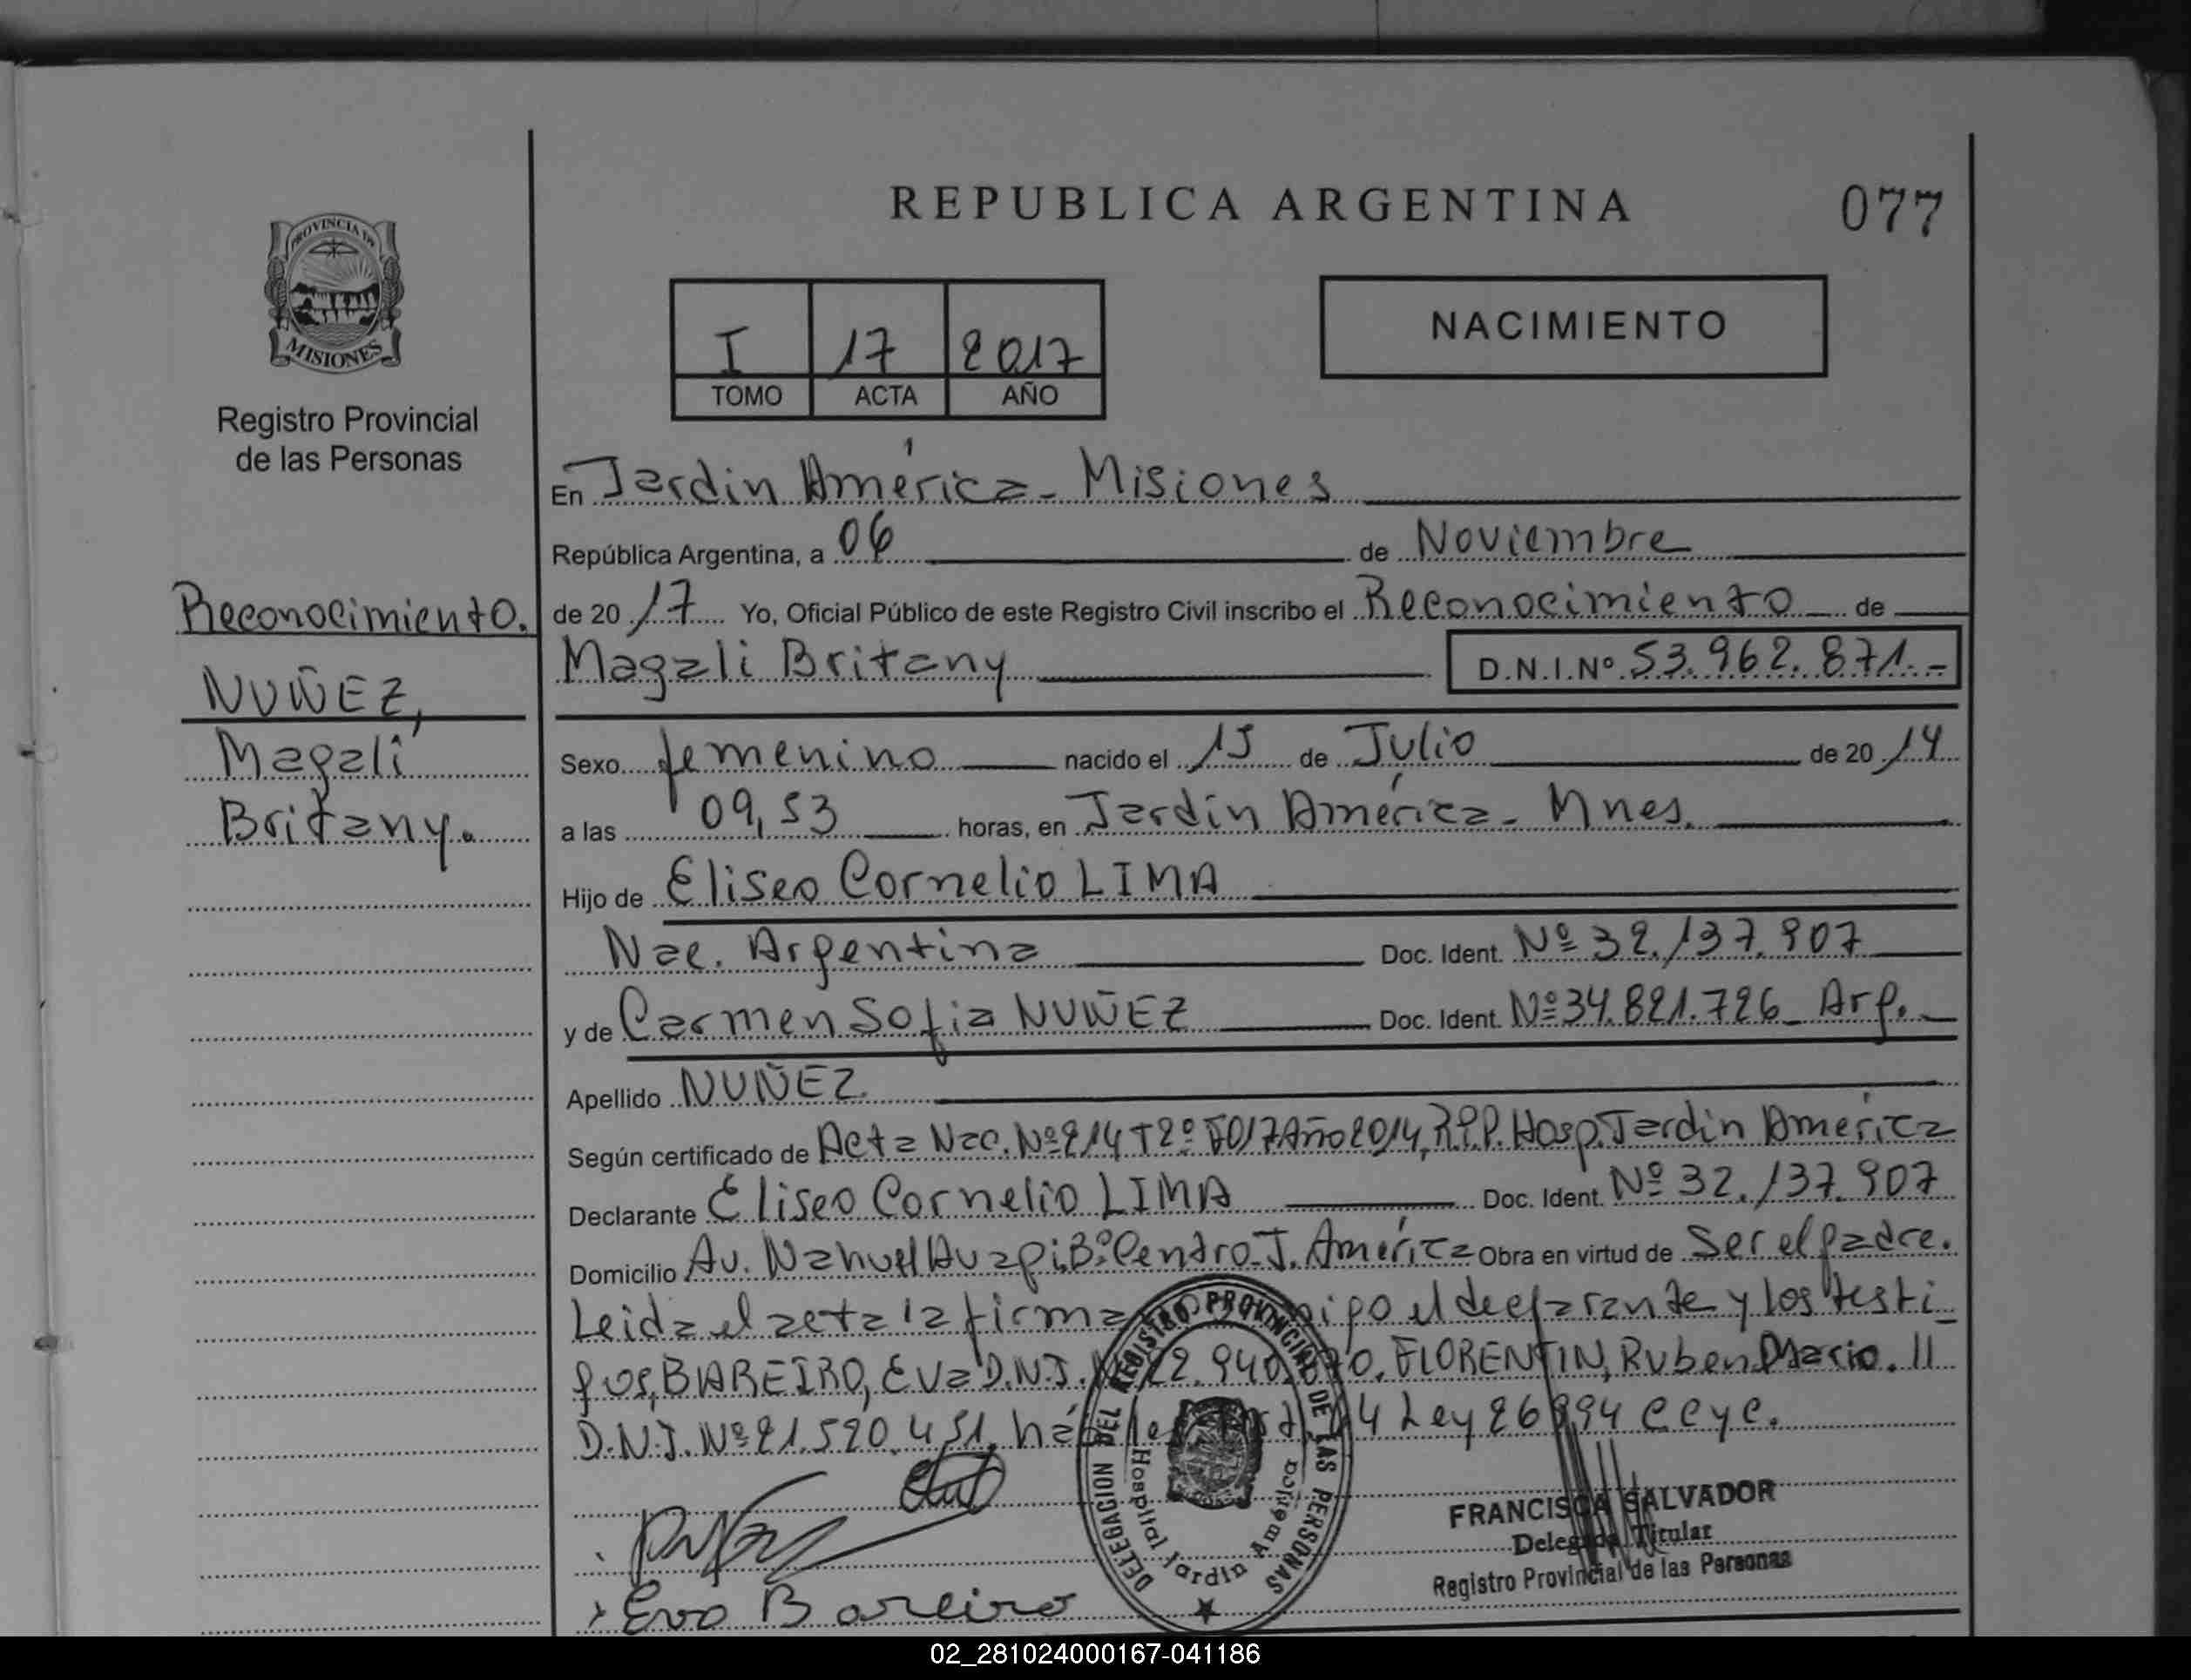 REPUBLICA ARGENTINA
077
PROVINCIA DE
MISIONES
Registro Provincial
de las Personas
I 17 2017
TOMO ACTA AÑO
NACIMIENTO
Reconocimiento.
NUÑEZ,
Magali
Britany.
En Jardin América - Misiones
República Argentina, a 06 de Noviembre
de 20 17 Yo, Oficial Público de este Registro Civil inscribo el Reconocimiento de
Magali Britany D.N.I.Nº 53.962.871.-
Sexo femenino nacido el 15 de Julio de 20 14
a las 09,53 horas, en Jardín América - Mnes.
Hijo de Eliseo Cornelio LIMA
Nac. Argentina Doc. Ident. Nº 32.137.907
y de Carmen Sofia NUÑEZ Doc. Ident. Nº 34.821.726 - Arg.
Apellido NUÑEZ.
Según certificado de Acta Nac. Nº 214 T2º F017 Año 2014, R.P.P. Hosp. Jardín América
Declarante Eliseo Cornelio LIMA Doc. Ident. Nº 32.137.907
Domicilio Av. Nahuel Huapi Bº Centro - J. América Obra en virtud de Ser el padre.
Leida el acta la firma el declarante y los testi-
gos, BAREIRO, Eva D.N.I. FLORENTIN, Ruben Mario. II
D.N.I. Nº 21.520.451, Ley 26994 CCyC.
DELEGACION DEL REGISTRO PROVINCIAL DE LAS PERSONAS
Hospital Jardín América
FRANCISCA SALVADOR
Delegada Titular
Registro Provincial de las Personas
Eva Bareiro
02_281024000167-041186